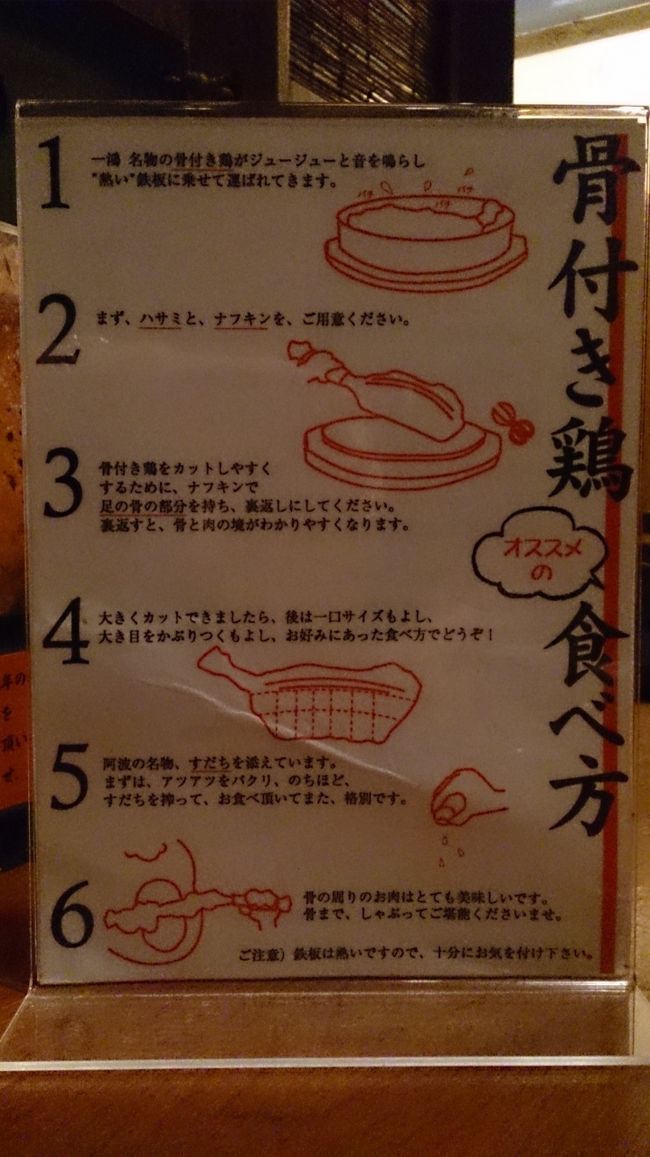 骨付き鶏
オススメ
の
食べ方
1
一鴻 名物の骨付き鶏がジュージューと音を鳴らし
"熱い"鉄板に乗せて運ばれてきます。
2
まず、ハサミと、ナフキンを、ご用意ください。
3
骨付き鶏をカットしやすく
するために、ナフキンで
足の骨の部分を持ち、裏返しにしてください。
裏返すと、骨と肉の境がわかりやすくなります。
4
大きくカットできましたら、後は一口サイズもよし、
大き目をかぶりつくもよし、お好みにあった食べ方でどうぞ!
5
阿波の名物、すだちを添えています。
まずは、アツアツをパクリ、のちほど、
すだちを搾って、お食べ頂いてまた、格別です。
6
骨の周りのお肉はとても美味しいです。
骨まで、しゃぶってご堪能くださいませ。
ご注意）鉄板は熱いですので、十分にお気を付け下さい。